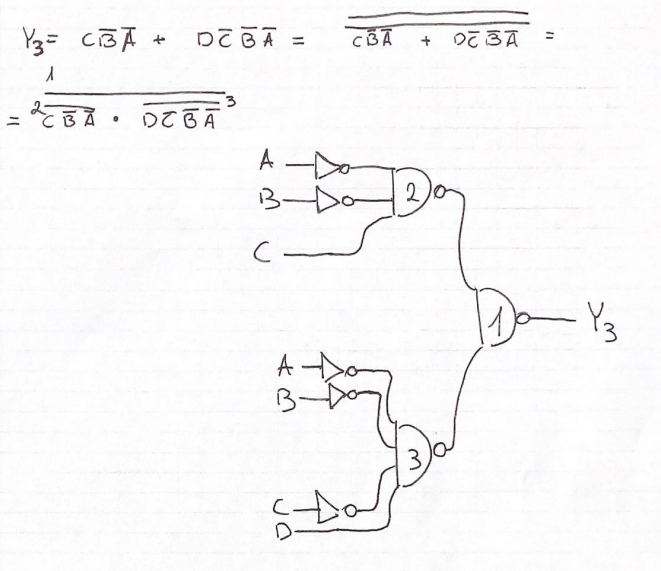 Y₃ = C B̅ A̅ + D C̅ B̅ A̅ = \overline{\overline{C B̅ A̅ + D C̅ B̅ A̅}} =
1
= \overline{²\overline{C B̅ A̅} · \overline{D C̅ B̅ A̅}³}
A
B
2
C
1
Y₃
A
B
3
C
D